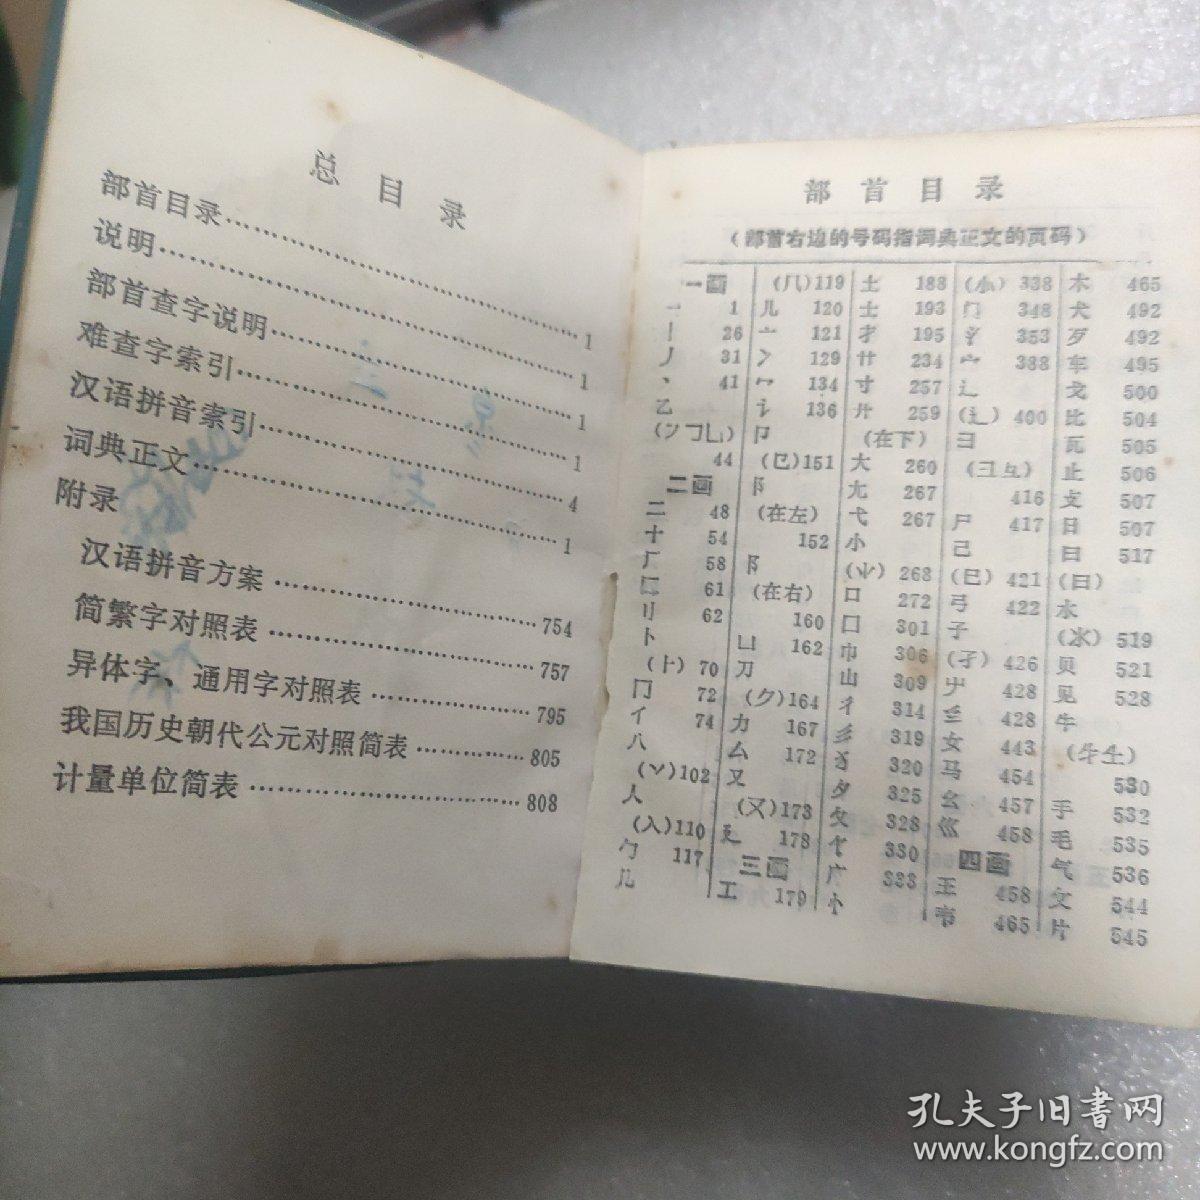 总目录
部首目录……………………………1
说明……………………………1
部首查字说明……………………………1
难查字索引……………………………1
汉语拼音索引……………………………4
词典正文……………………………1
附录
汉语拼音方案……………………………754
简繁字对照表……………………………757
异体字、通用字对照表……………795
我国历史朝代公元对照简表…………805
计量单位简表……………………………808
部首目录
（部首右边的号码指词典正文的页码）
一画
一 1
丨 26
丿 31
丶 41
乙
(乛⺄乚) 44
二画
二 48
十 54
厂 58
匚 61
刂 62
卜
(⺊) 70
冂 72
亻 74
八
(丷) 102
人
(入) 110
勹 117
几
(⺇) 119
儿 120
亠 121
冫 129
冖 134
讠 136
卩
(㔾) 151
阝
(在左) 152
阝
(在右) 160
凵 162
刀
(⺈) 164
力 167
厶 172
又
(又) 173
廴 178
三画
工 179
土 188
士 193
扌 195
艹 234
寸 257
廾
(在下) 259
大 260
尢 267
弋 267
小
(⺌) 268
口 272
囗 301
巾 306
山 309
彳 314
彡 319
犭 320
夕 325
夂 328
饣 330
广 333
忄
(㣺) 338
门 348
氵 353
宀 388
辶
(辶) 400
彐
(彑) 416
尸 417
己
(巳) 421
弓 422
子
(孑) 426
屮 428
纟 428
女 443
马 454
幺 457
巛 458
四画
王 458
韦 465
木 465
犬 492
歹 492
车 495
戈 500
比 504
瓦 505
止 506
攴 507
日 507
曰
(曰) 517
水
(氺) 519
贝 521
见 528
牛
(牜⺧) 530
手 532
毛 535
气 536
文 544
片 545
孔夫子旧书网
www.kongfz.com